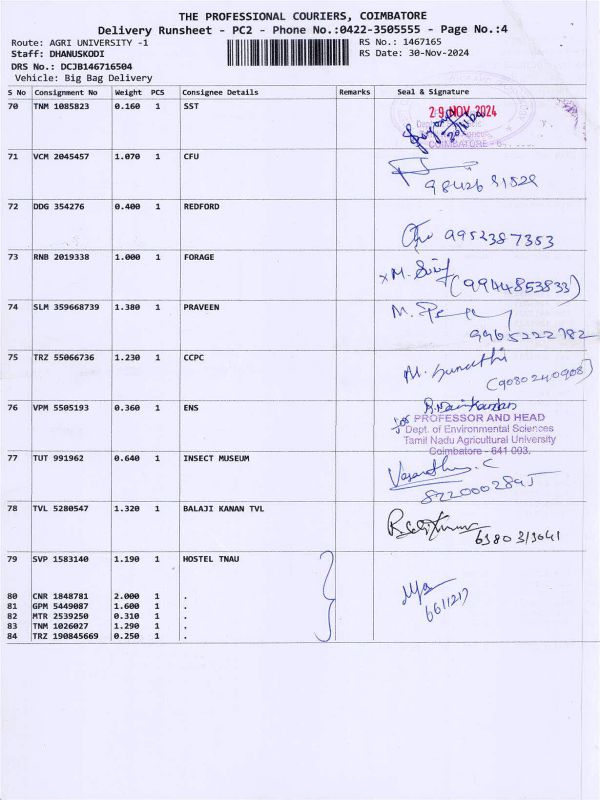 THE PROFESSIONAL COURIERS, COIMBATORE
Delivery Runsheet - PC2 - Phone No.:0422-3505555 - Page No.:4
Route: AGRI UNIVERSITY -1 RS No.: 1467165
Staff: DHANUSKODI RS Date: 30-Nov-2024
DRS No.: DCJB146716504
Vehicle: Big Bag Delivery
S No Consignment No Weight PCS Consignee Details Remarks Seal & Signature
70 TNM 1085823 0.160 1 SST
29 NOV 2024
COIMBATORE - 6
71 VCM 2045457 1.070 1 CFU
72 DDG 354276 0.400 1 REDFORD
9952387353
73 RNB 2019338 1.000 1 FORAGE
(9944853833)
74 SLM 359668739 1.380 1 PRAVEEN
9965222782
75 TRZ 55066736 1.230 1 CCPC
(9080240908)
76 VPM 5505193 0.360 1 ENS
for PROFESSOR AND HEAD
Dept. of Environmental Sciences
Tamil Nadu Agricultural University
Coimbatore - 641 003.
77 TUT 991962 0.640 1 INSECT MUSEUM
8220002895
78 TVL 5280547 1.320 1 BALAJI KANAN TVL
79 SVP 1583140 1.190 1 HOSTEL TNAU
80 CNR 1848781 2.000 1 .
6611217
81 GPM 5449087 1.600 1 .
82 MTR 2539250 0.310 1 .
83 TNM 1026027 1.290 1 .
84 TRZ 190845669 0.250 1 .